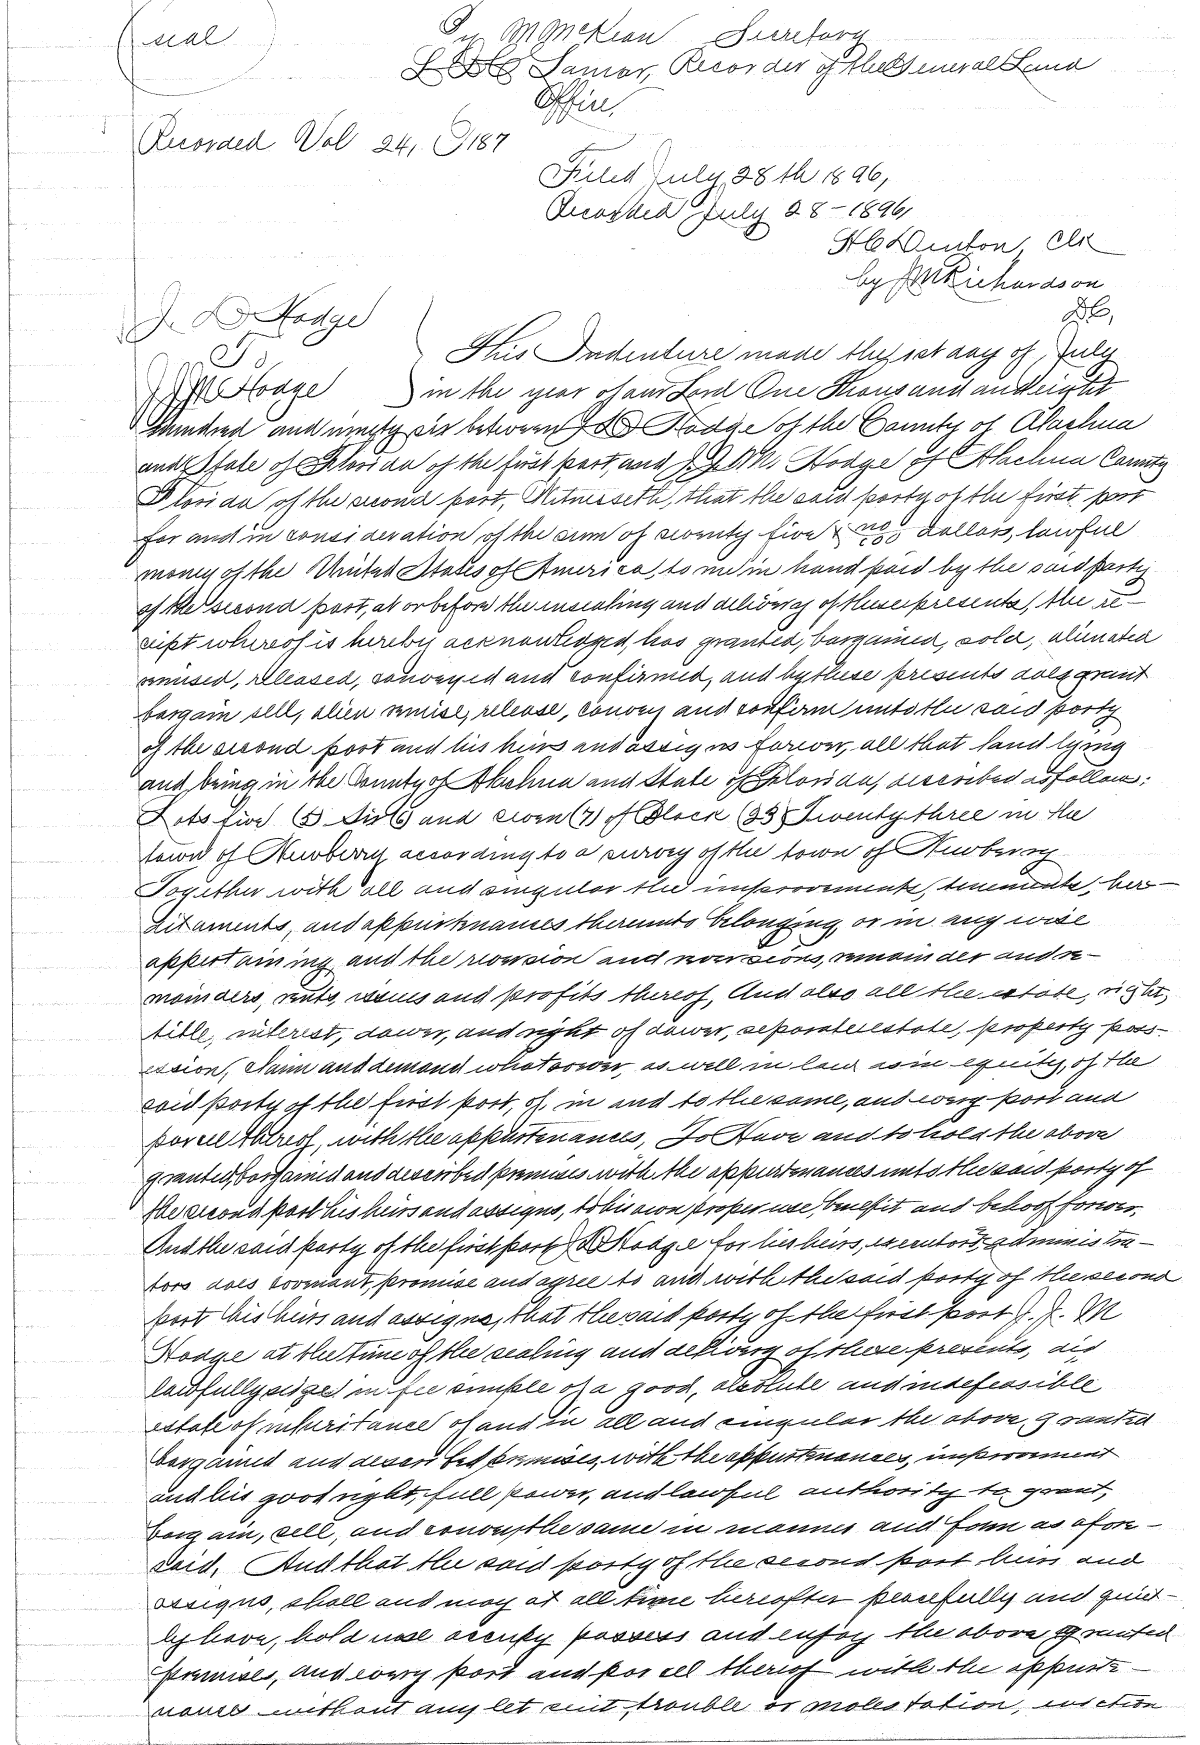 seal
By M McKean Secretary
L Q C Lamar, Recorder of the General Land
Office,
Recorded Vol 24, P 187
Filed July 28th 1896,
Recorded July 28-1896,
H C Denton, Clk
by J M Richardson
DC,
J. D Hodge
To
J J M Hodge
This Indenture made the 1st day of July
in the year of our Lord One Thousand and eight
Hundred and ninety six between J D Hodge of the County of Alachua
and State of Florida of the first part, and J. J. M. Hodge of Alachua County
Florida of the second part, Witnesseth, that the said party of the first part
for and in consideration of the sum of seventy five & no/100 dollars, lawful
money of the United States of America, to me in hand paid by the said party
of the second part, at or before the ensealing and delivery of these presents, the re-
ceipt whereof is hereby acknowledged, has granted, bargained, sold, alienated
remised, released, conveyed and confirmed, and by these presents does grant
bargain sell, alien remise, release, convey and confirm unto the said party
of the second part and his heirs and assigns forever, all that land lying
and, being in the County of Alachua and State of Florida, described as follows:
Lots five (5) Six (6) and seven (7) of Block (23) Twenty three in the
town of Newberry according to a survey of the town of Newberry
Together with all and singular the improvements, tenements, her-
ditaments, and appurtenances thereunto belonging, or in any wise
appertaining and the reversion and reversions, remainder and re-
mainders, rents, issues and profits thereof, And also all the estate, right,
title, interest, dower, and right of dower, separate estate, property poss-
ession, claim and demand whatsoever, as well in law as in equity, of the
said party of the first part, of, in and to the same, and every part and
parcel thereof, with the appurtenances, To Have and to hold the above
granted, bargained and described premises with the appurtenances unto the said party of
the second part his heirs and assigns, to his own proper use, benefit and behoof forever,
And the said party of the first part J D Hodge for his heirs, executors, administra-
tors does covenant, promise and agree to and with the said party of the second
part his heirs and assigns, that the said party of the first part J. J. M
Hodge at the time of the sealing and delivery of these presents, is
lawfully seized in fee simple of a good, absolute and indefeasible
estate of inheritance of and in all and singular the above, granted
bargained and described premises, with the appurtenances, improvement
and his good right, full power, and lawful authority to grant,
bargain, sell, and convey the same in manner and form as afore-
said. And that the said party of the second part heirs and
assigns, shall and may at all time hereafter peacefully and quiet-
ly have, hold use occupy possess and enjoy the above granted
premises, and every part and parcel thereof with the appurte-
nances without any let suit, trouble or molestation, eviction